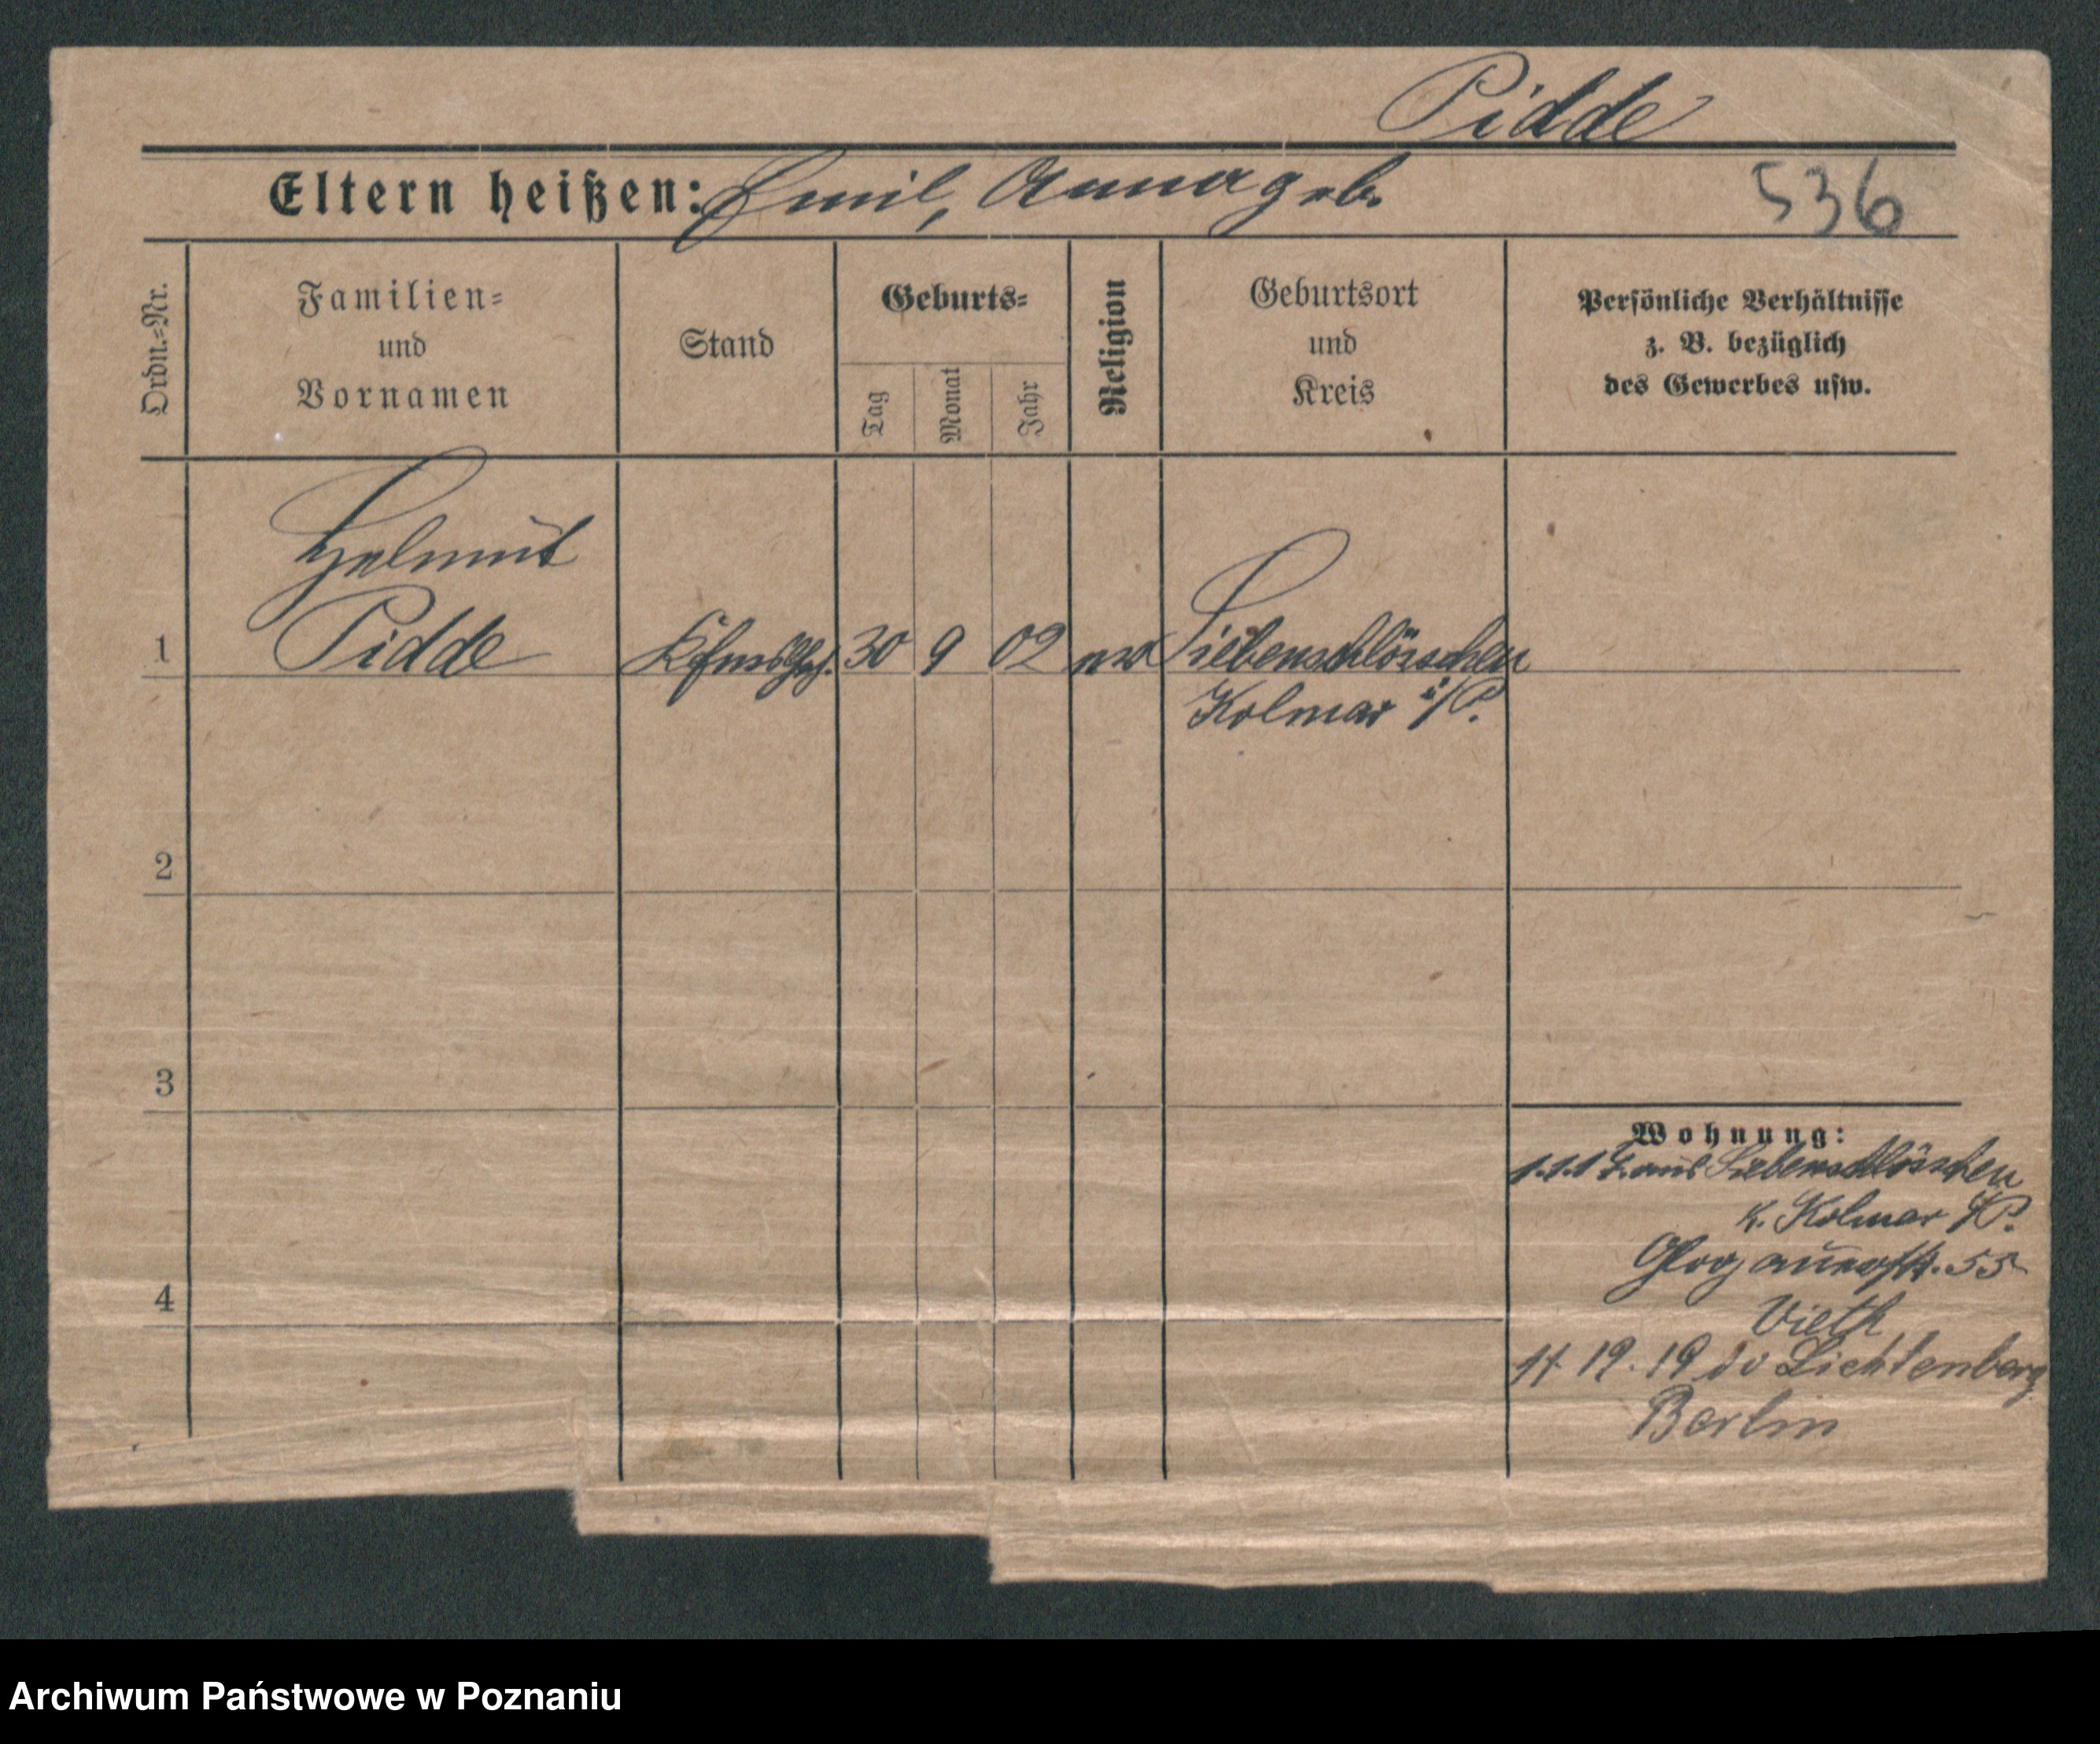 Pidde
Eltern heißen: Emil, Anna geb.
536
Ordn.=Nr.
Familien=
und
Vornamen
Stand
Geburts=
Tag
Monat
Jahr
Religion
Geburtsort
und
Kreis
Persönliche Verhältnisse
z. B. bezüglich
des Gewerbes usw.
Helmut
1 Pidde 30 9 02 Siebenschlösschen
Kolmar i/P.
2
3
4
Wohnung:
aus Siebenschlösschen
K. Kolmar i/P.
Glogauerstr. 55
Vieth
19 Lichtenberg
Berlin
Archiwum Państwowe w Poznaniu